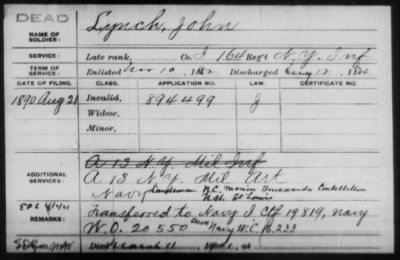 DEAD
NAME OF SOLDIER: Lynch, John
SERVICE: Late rank, Co. I 164 Reg't N.Y. Inf
TERM OF SERVICE: Enlisted Nov 10, 1862 Discharged 12, 1864
DATE OF FILING. CLASS. APPLICATION NO. LAW. CERTIFICATE NO.
1890 Aug 21 Invalid, 894499 J
Widow,
Minor,
A 13 N.Y. Mil Inf
ADDITIONAL SERVICES: A 13 N.Y. Mil Art
Navy Landsman N.C. Tonawanda Constellation
St Louis
REMARKS: Transferred to Navy I Ctf 19819, Navy
W.O. 20550 Navy W.C. 16233
Died March 11